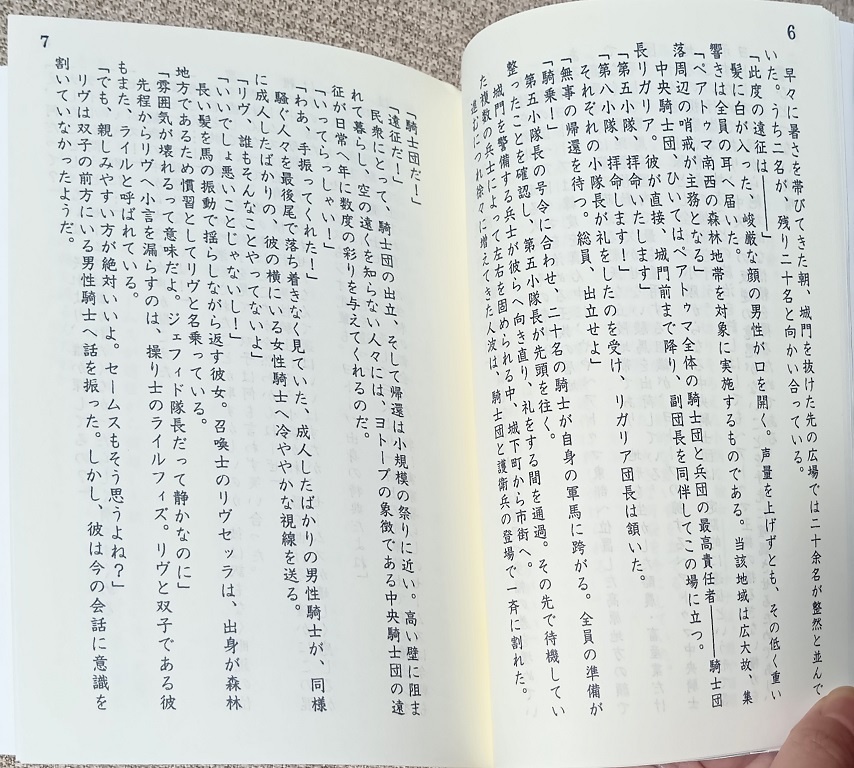 6
早々に暑さを帯びてきた朝、城門を抜けた先の広場では二十余名が整然と並んで
いた。うち二名が、残り二十名と向かい合っている。
「此度の遠征は――――」
髪に白が入った、峻厳な顔の男性が口を開く。声量を上げずとも、その低く重い
響きは全員の耳へ届いた。
「ペアトゥマ南西の森林地帯を対象に実施するものである。当該地域は広大故、集
落周辺の哨戒が主務となる」
中央騎士団、ひいてはペアトゥマ全体の騎士団と兵団の最高責任者――騎士団
長リガリア。彼が直接、城門前まで降り、副団長を同伴してこの場に立つ。
「第五小隊、拝命いたします」
「第八小隊、拝命します！」
それぞれの小隊長が礼をしたのを受け、リガリア団長は頷いた。
「無事の帰還を待つ。総員、出立せよ」
「騎乗！」
第五小隊長の号令に合わせ、二十名の騎士が自身の軍馬に跨がる。全員の準備が
整ったことを確認し、第五小隊長が先頭を往く。
城門を警備する兵士が彼らへ向き直り、礼をする間を通過。その先で待機してい
た複数の兵士によって左右を固められる中、城下町から市街へ。
進むにつれ徐々に増えてきた人波は、騎士団と護衛兵の登場で一斉に割れた。
7
「騎士団だ！」
「遠征だ！」
民衆にとって、騎士団の出立、そして帰還は小規模の祭りに近い。高い壁に阻ま
れて暮らし、空の遠くを知らない人々には、ヨトープの象徴である中央騎士団の遠
征が日常へ年に数度の彩りを与えてくれるのだ。
「いってらっしゃい！」
「わあ、手振ってくれた！」
騒ぐ人々を最後尾で落ち着きなく見ていた、成人したばかりの男性騎士が、同様
に成人したばかりの、彼の横にいる女性騎士へ冷ややかな視線を送る。
「リヴ、誰もそんなことやってないよ」
「いいでしょ悪いことじゃないし！」
長い髪を馬の振動で揺らしながら返す彼女。召喚士のリヴセッラは、出身が森林
地方であるため慣習としてリヴと名乗っている。
「雰囲気が壊れるって意味だよ。ジェフィド隊長だって静かなのに」
先程からリヴへ小言を漏らすのは、操り士のライルフィズ。リヴと双子である彼
もまた、ライルと呼ばれている。
「でも、親しみやすい方が絶対いいよ。セームスもそう思うよね？」
リヴは双子の前方にいる男性騎士へ話を振った。しかし、彼は今の会話に意識を
割いていなかったようだ。